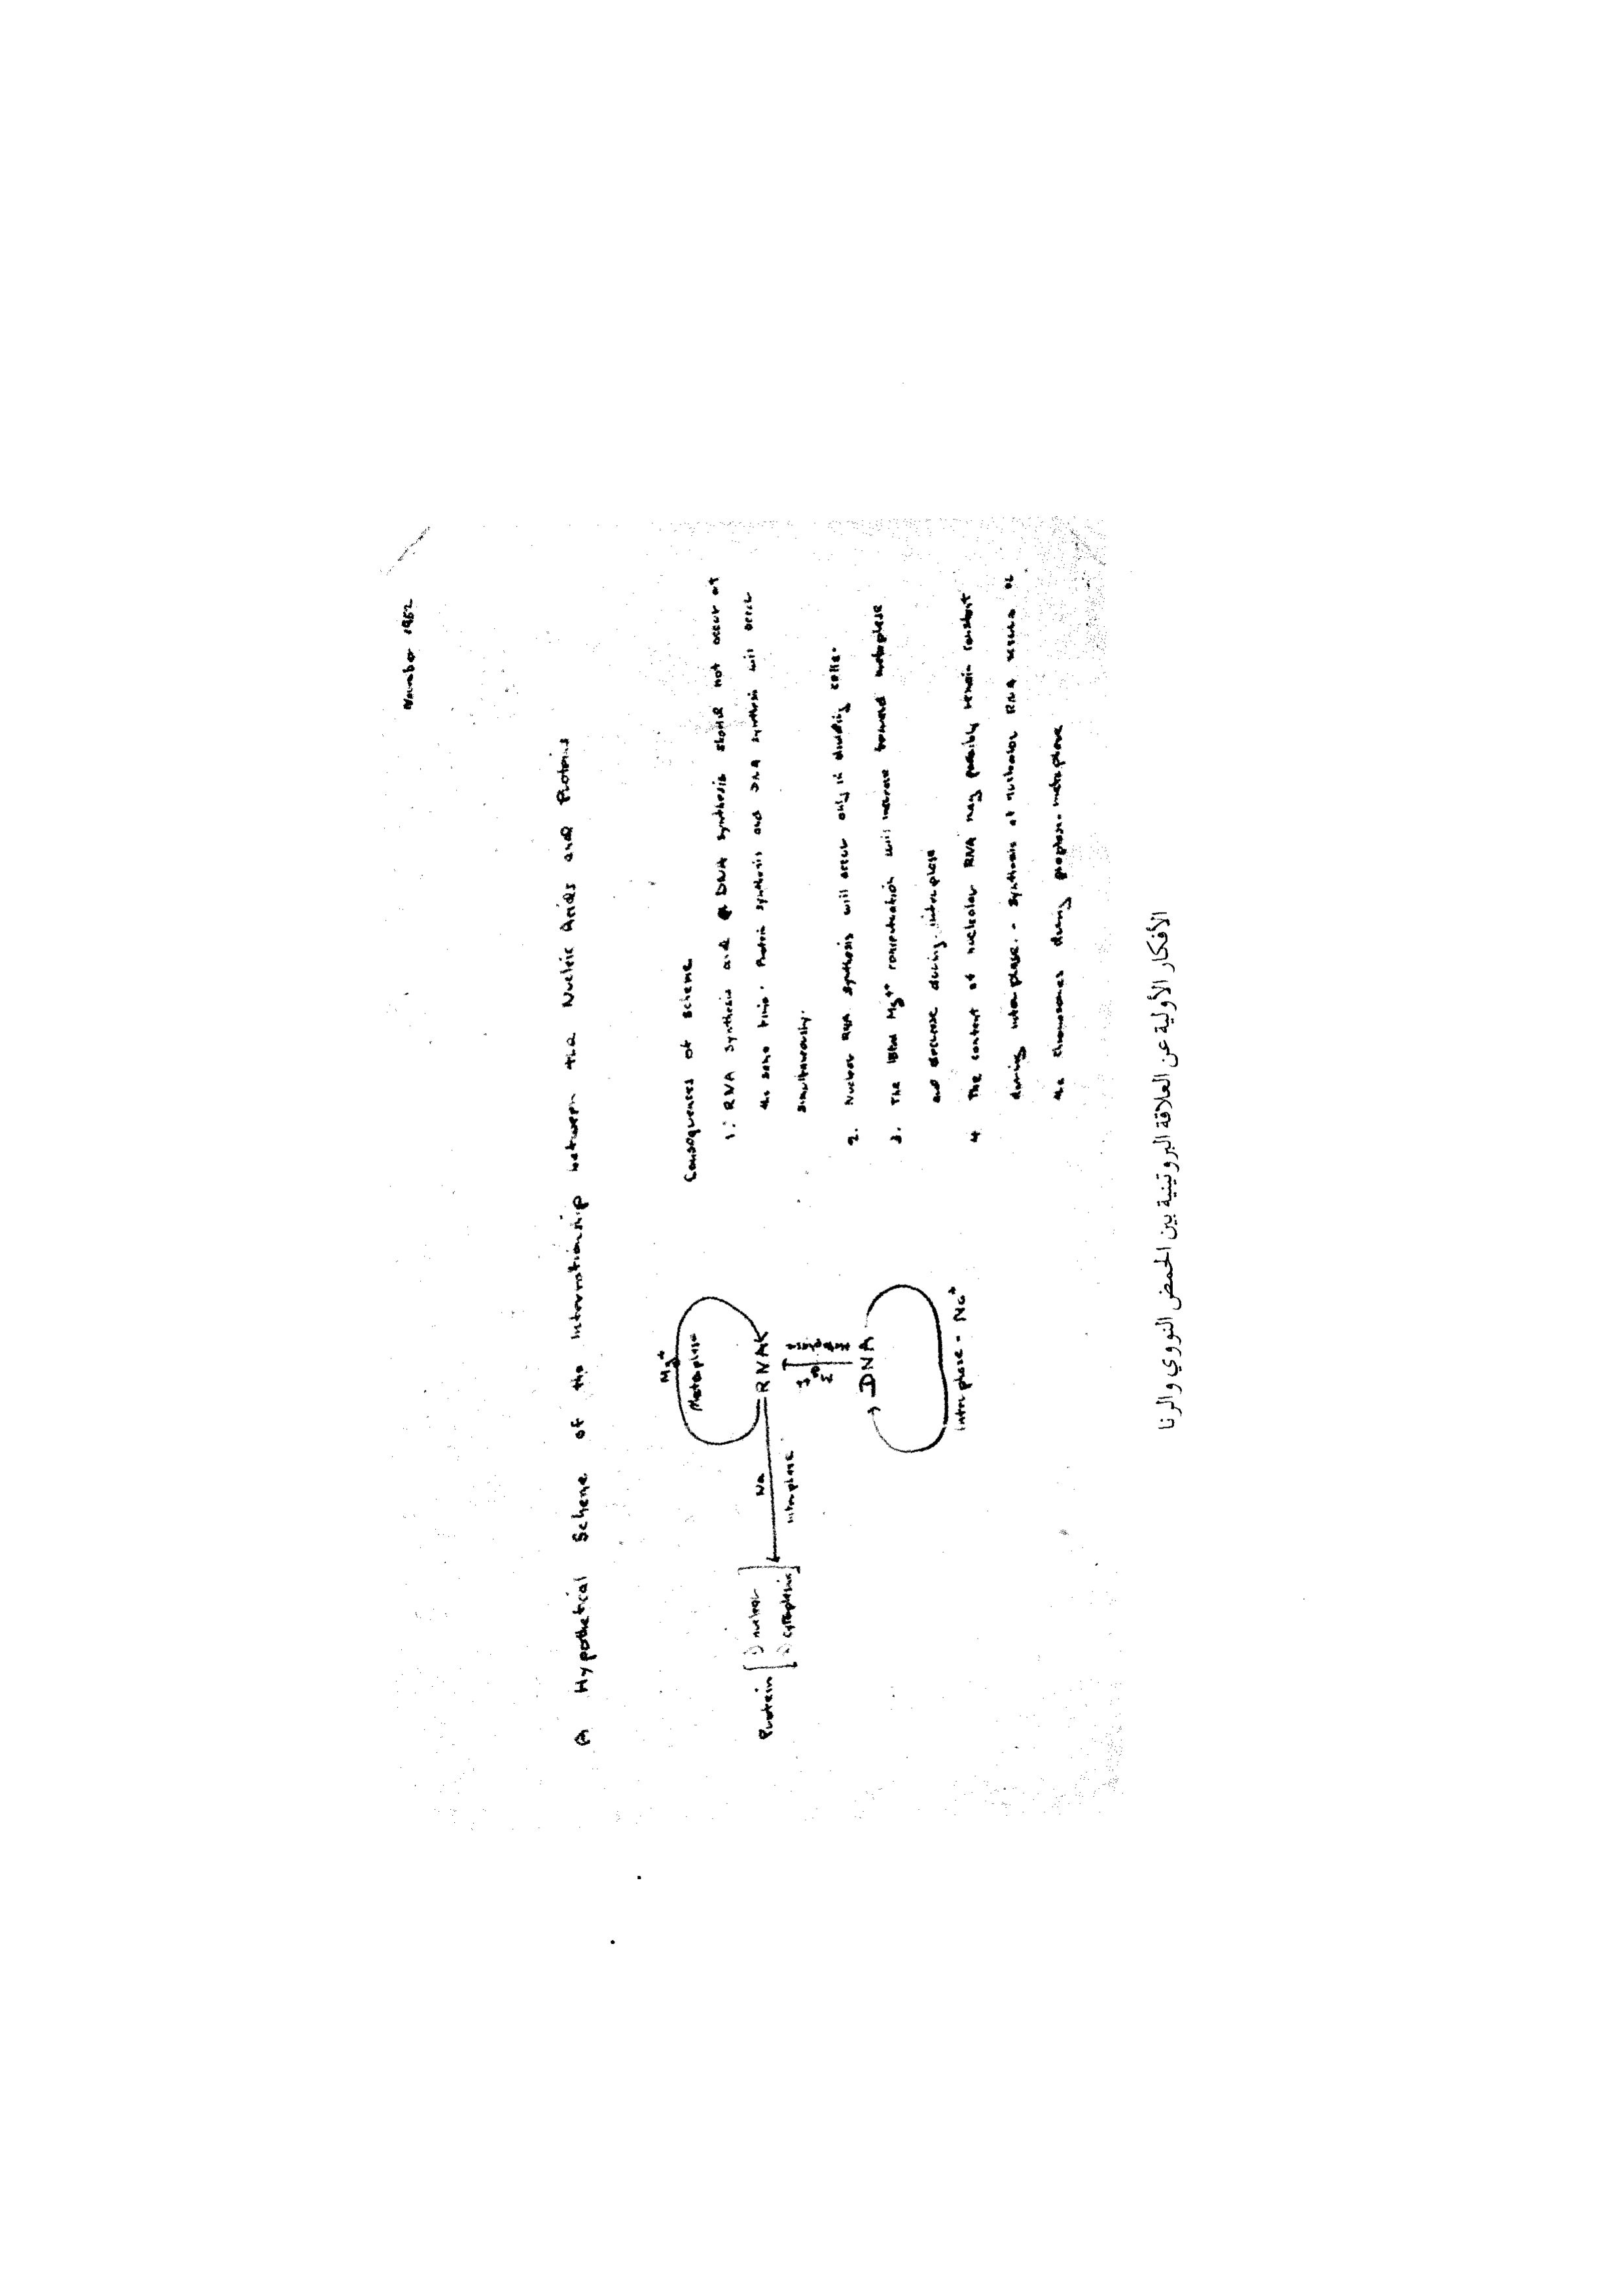 November 1952
A Hypothetical Scheme of the Interrationship between the Nucleic Acids and Proteins
Mg+
Metaphase
RNA
Protein [1) nuclear
2) cytoplasmic]
Na
interphase
DNA
interphase - Na+
Consequences of scheme
1. RNA synthesis and DNA synthesis should not occur at
the same time. Protein synthesis and DNA synthesis will occur
simultaneously.
2. Nuclear RNA synthesis will occur only in dividing cells.
3. The total Mg++ concentration will increase toward metaphase
and decrease during interphase
4 The content of nucleolar RNA may possibly remain constant
during interphase. - synthesis of nucleolar RNA occurs
the chromosomes during prophase-metaphase
الأفكار الأولية عن العلاقة البروتينية بين الحمض النووي والرنا